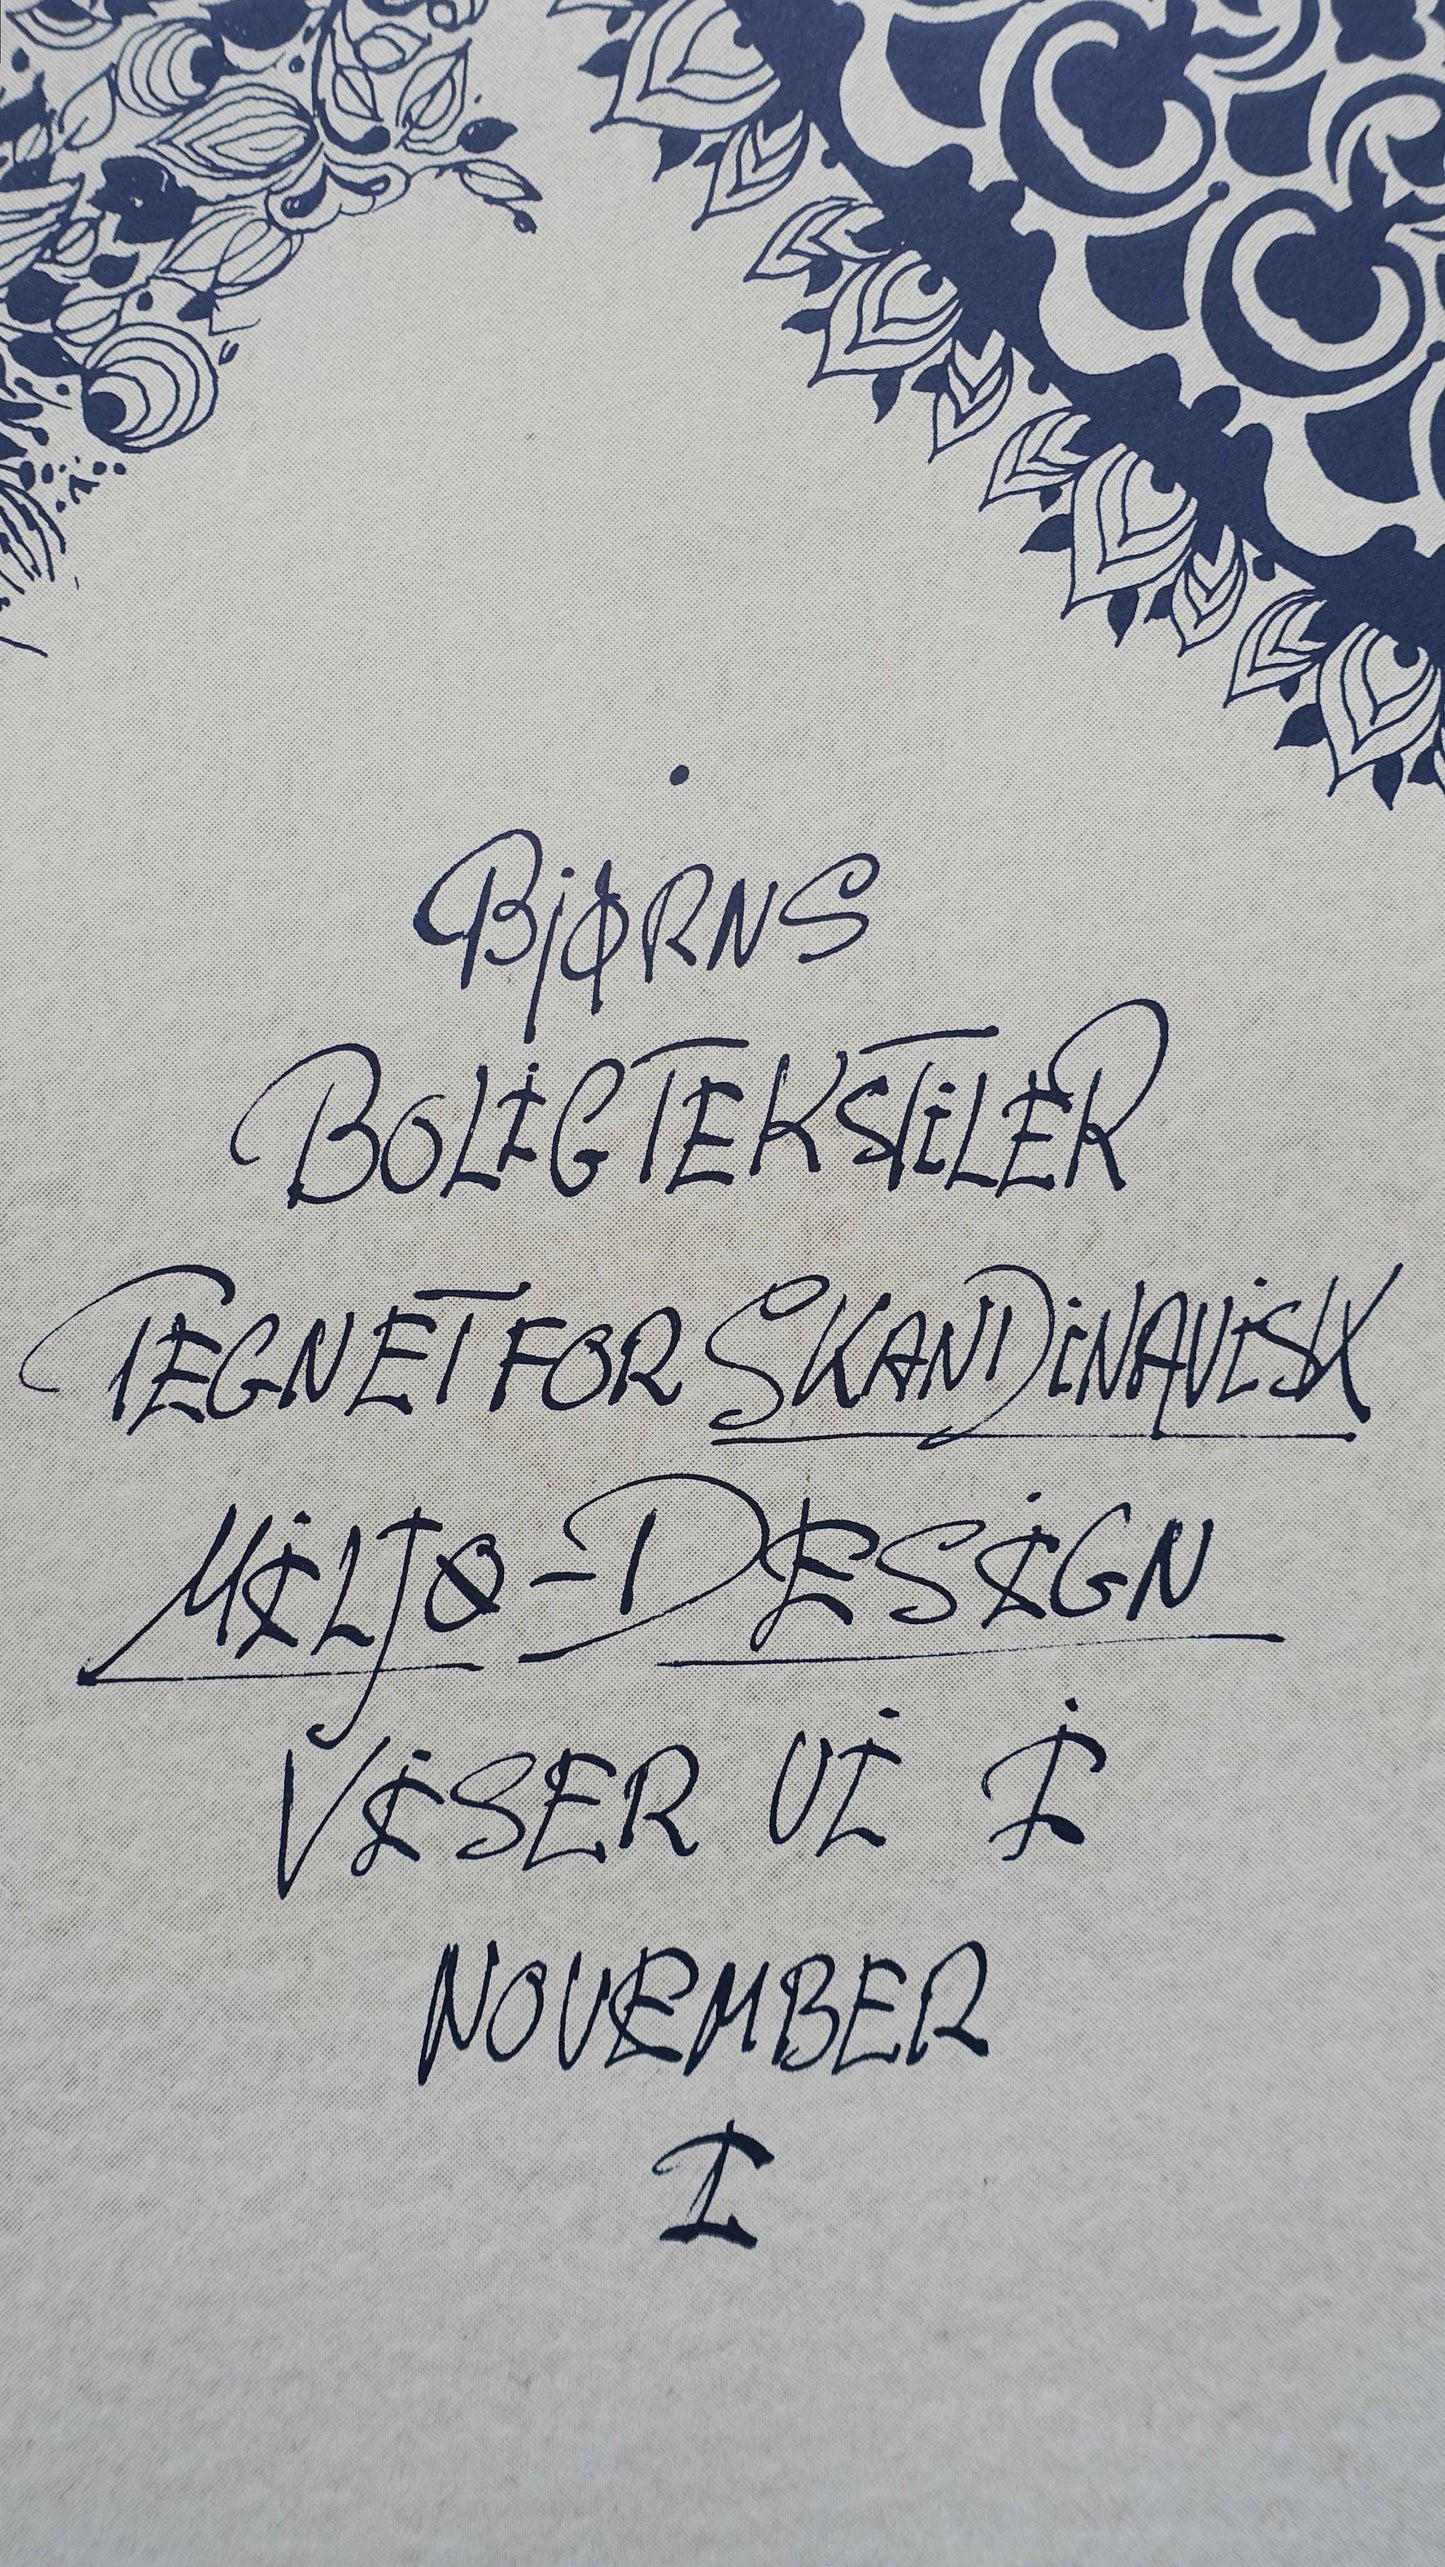 BJØRNS
BOLIGTEKSTILER
TEGNET FOR SKANDINAVISK
MILJØ-DESIGN
VISER VI I
NOVEMBER
I